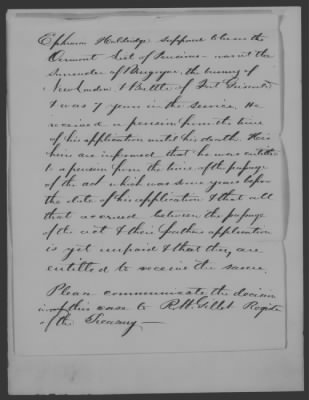 Ephraim Holdridge supposed to be on the
Vermont List of Pensions - was at the
Surrender of Burgoyne, the burning of
New London & Battle of Fort Griswold
& was 7 years in the service. He
received a pension from the time
of his application until his death. His
heirs are informed that he was entitled
to a pension from the time of the passage
of the act which was some years before
the date of his application & that all
that accrued between the passage
of the act & their fathers application
is yet unpaid & that they are
entitled to receive the same.
Please communicate the decision
in this case to R. H. Gillet Register
of the Treasury.